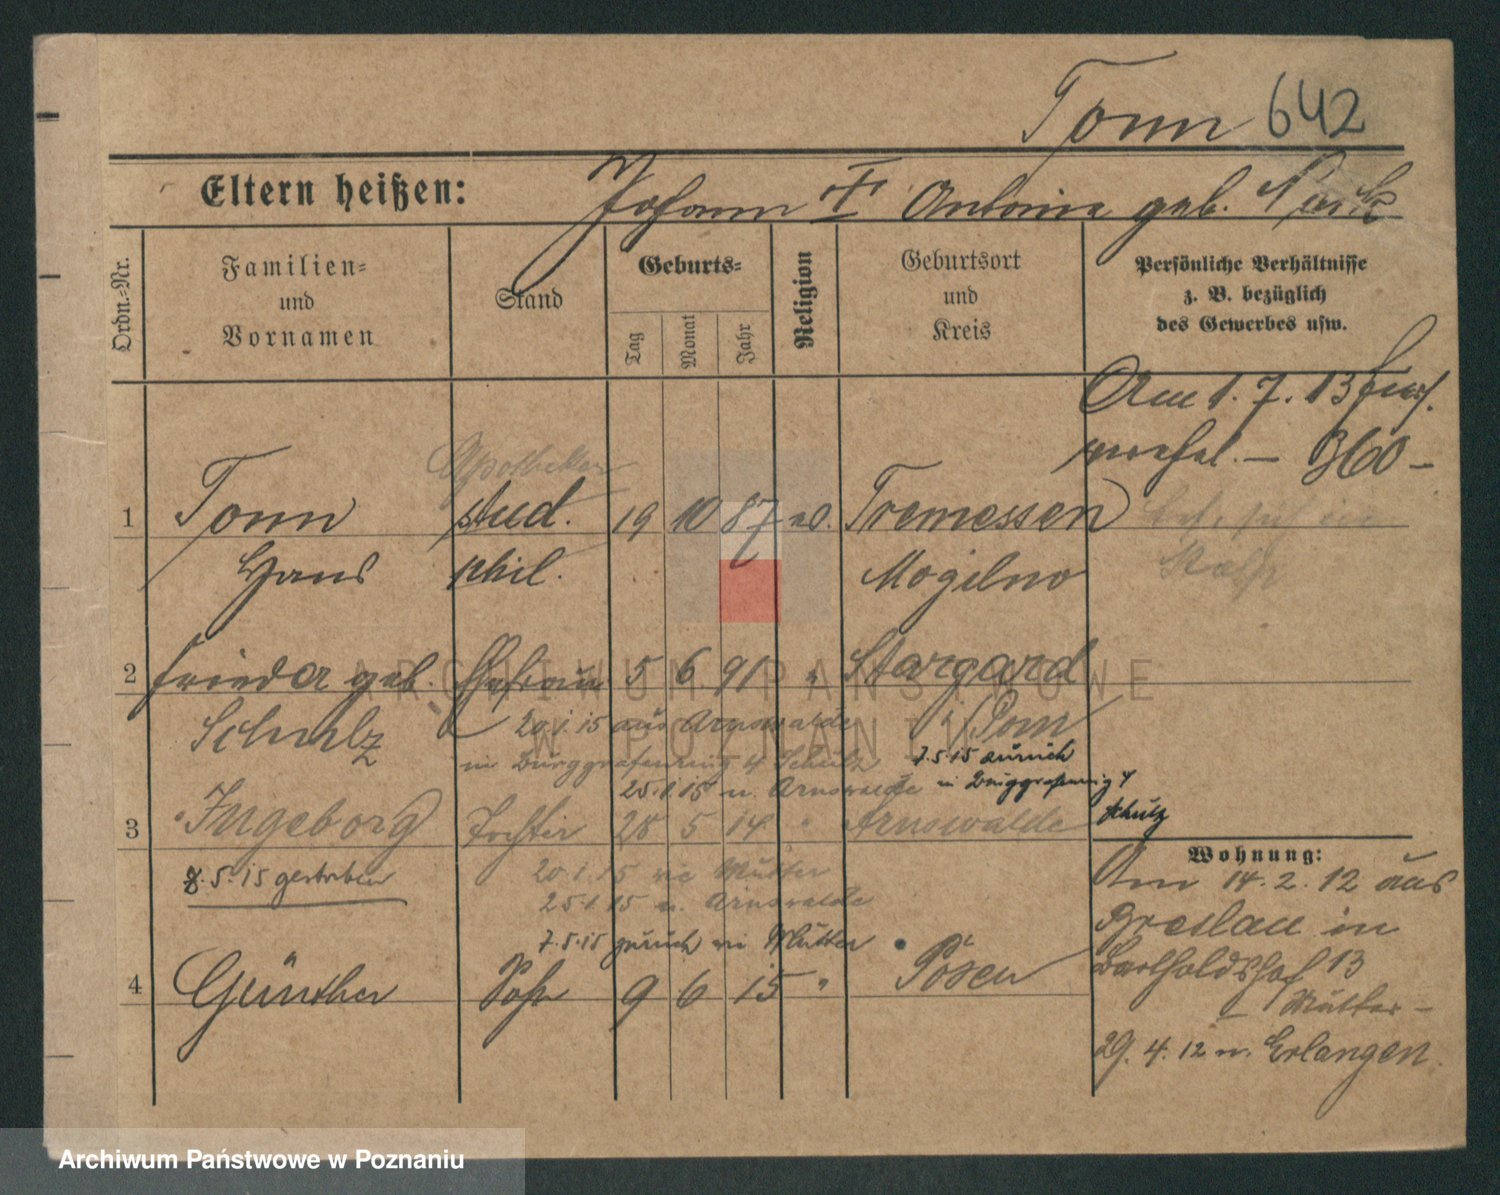 Tonn 642
Eltern heißen: Johann † Antonie geb.
Ordn.-Nr.
Familien- und Vornamen
Stand
Geburts-
Tag
Monat
Jahr
Religion
Geburtsort und Kreis
Persönliche Verhältnisse
z. B. bezüglich
des Gewerbes usw.
Am 1. 7. 13
360 –
Apotheker
1 Tonn stud. 19 10 87 Tremessen
Hans phil. Mogilno
2 Frieda geb. Ehefrau 5 6 91 " Stargard
Schulz
i/Pom
20.1.15 aus Arnswalde
in Burggrafenring 4 Schulz
7.5.15 zurück
25.1.15 n. Arnswalde
in Burggrafenring 4
Schulz
3 Ingeborg Tochter 28 5 14 " Arnswalde
8.5.15 gestorben
20.1.15 wie Mutter
25.1.15 n. Arnswalde
7.5.15 zurück wie Mutter
4 Günther Sohn 9 6 15 " Posen
Wohnung:
Am 14. 2. 12 aus
Breslau in
Bartholdshof 13
Mutter –
29. 4. 12 n. Erlangen.
ARCHIWUM PAŃSTWOWE
W POZNANIU
Archiwum Państwowe w Poznaniu